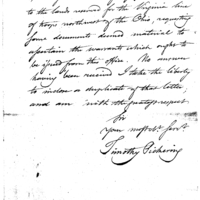 to the lands reserved for the Virginia line
of troops northwest of the Ohio, requesting
some documents deemed material to
ascertain the warrants which ought to
be issued from this office. No answer
having been received I take the liberty
to inclose a duplicate of that letter;
and am with the greatest respect
Sir
your most obt. servt.
Timothy Pickering